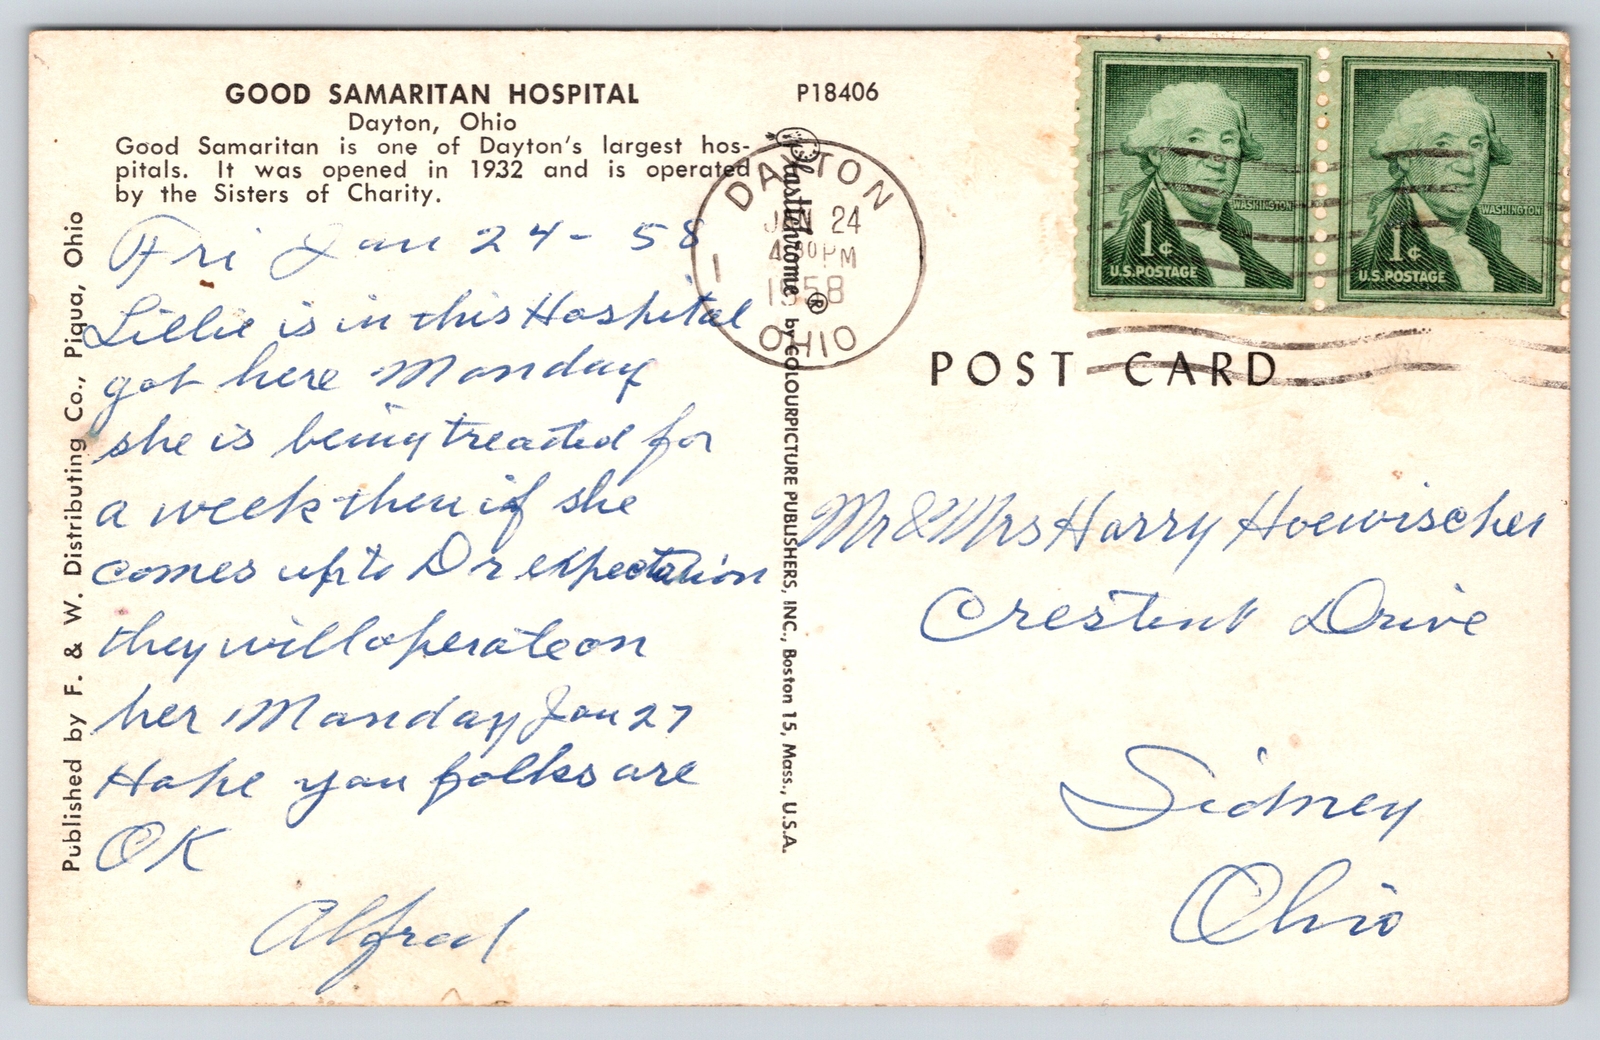 GOOD SAMARITAN HOSPITAL
Dayton, Ohio
Good Samaritan is one of Dayton's largest hos-
pitals. It was opened in 1932 and is operated
by the Sisters of Charity.
Fri Jan 24 - 58
Lillie is in this Hospital
got here Monday
she is being treated for
a week then if she
comes up to Dr expectation
they will operate on
her Monday Jan 27
Hope you folks are
OK
Alfred
Published by F. & W. Distributing Co., Piqua, Ohio
P18406
Plastichrome ® by COLOURPICTURE PUBLISHERS, INC., Boston 15, Mass., U.S.A.
DAYTON
JAN 24
4 30 PM
1958
OHIO
1
WASHINGTON
1¢
U.S. POSTAGE
WASHINGTON
1¢
U.S. POSTAGE
POST CARD
Mr & Mrs Harry Hoewischer
Crestent Drive
Sidney
Ohio